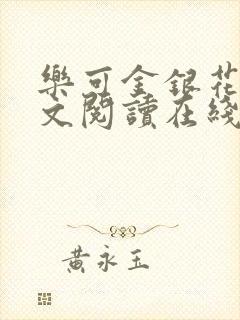 樂可金銀花
文閱讀在綫
黃永玉